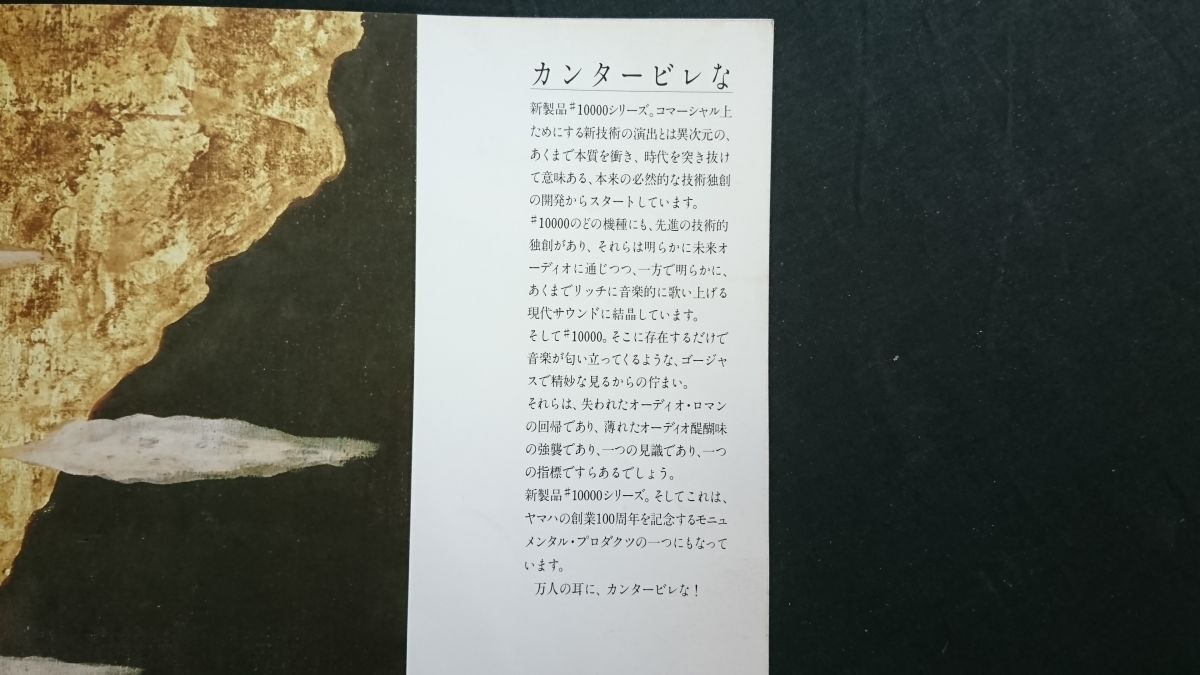 カンタービレな
新製品♯10000シリーズ。コマーシャル上
ためにする新技術の演出とは異次元の、
あくまで本質を衝き、時代を突き抜け
て意味ある、本来の必然的な技術独創
の開発からスタートしています。
♯10000のどの機種にも、先進の技術的
独創があり、それらは明らかに未来オ
ーディオに通じつつ、一方で明らかに、
あくまでリッチに音楽的に歌い上げる
現代サウンドに結晶しています。
そして♯10000。そこに存在するだけで
音楽が匂い立ってくるような、ゴージャ
スで精妙な見るからの佇まい。
それらは、失われたオーディオ・ロマン
の回帰であり、薄れたオーディオ醍醐味
の強襲であり、一つの見識であり、一つ
の指標ですらあるでしょう。
新製品♯10000シリーズ。そしてこれは、
ヤマハの創業100周年を記念するモニュ
メンタル・プロダクツの一つにもなって
います。
万人の耳に、カンタービレな！